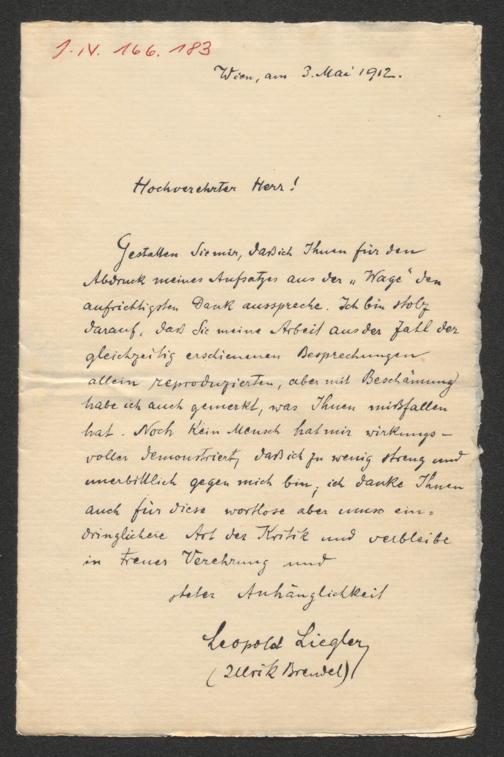 J.N. 166.183
Wien, am 3. Mai 1912.
Hochverehrter Herr!
Gestatten Sie mir, daß ich Ihnen für den
Abdruck meines Aufsatzes aus der „Wage" den
aufrichtigsten Dank ausspreche. Ich bin stolz
darauf, daß Sie meine Arbeit aus der Zahl der
gleichzeitig erschienenen Besprechungen
allein reproduzierten, aber mit Beschämung
habe ich auch gemerkt, was Ihnen mißfallen
hat. Noch kein Mensch hat mir wirkungs-
voller demonstriert, daß ich zu wenig streng und
unerbittlich gegen mich bin; ich danke Ihnen
auch für diese wortlose aber umso ein=
dringlichere Art der Kritik und verbleibe
in treuer Verehrung und
steter Anhänglichkeit
Leopold Liegler
(Ulrik Brendel)